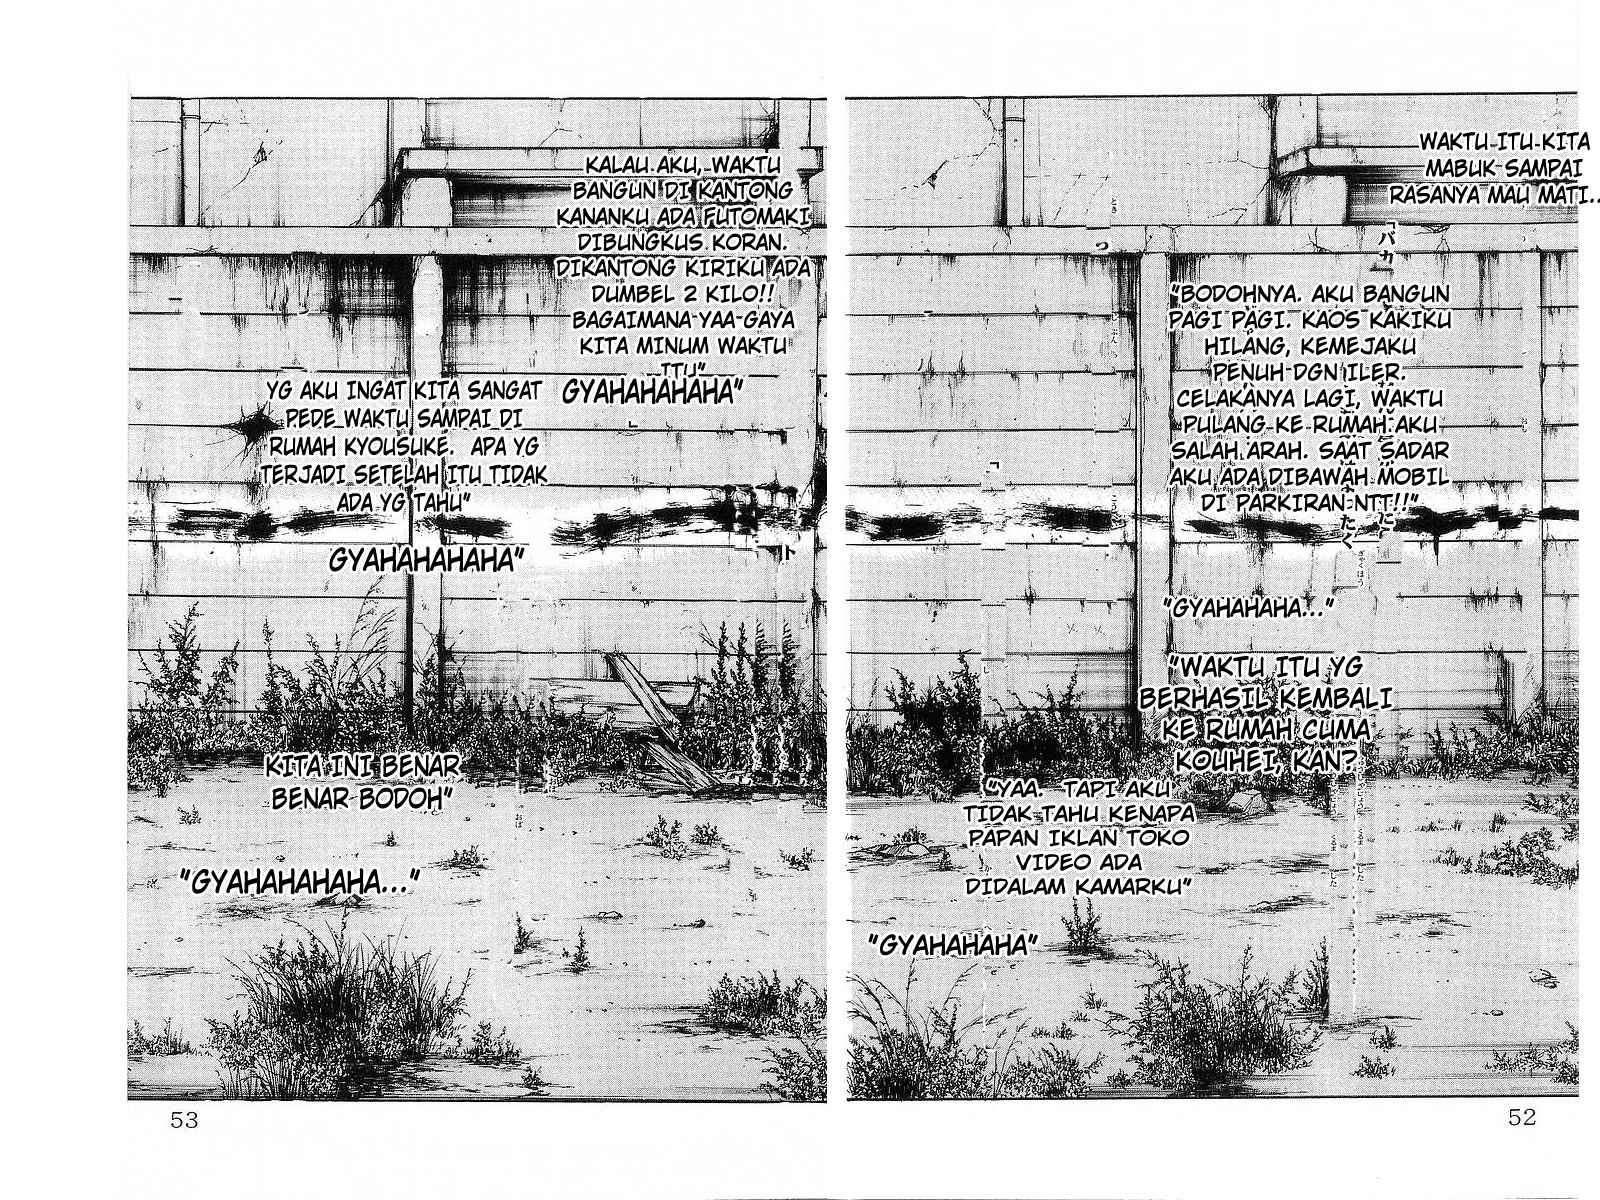 WAKTU ITU KITA
MABUK SAMPAI
RASANYA MAU MATI..
"BODOHNYA. AKU BANGUN
PAGI PAGI. KAOS KAKIKU
HILANG, KEMEJAKU
PENUH DGN ILER.
CELAKANYA LAGI, WAKTU
PULANG KE RUMAH AKU
SALAH ARAH. SAAT SADAR
AKU ADA DIBAWAH MOBIL
DI PARKIRAN NTT!!"
"GYAHAHAHA..."
"WAKTU ITU YG
BERHASIL KEMBALI
KE RUMAH CUMA
KOUHEI, KAN?
"YAA. TAPI AKU
TIDAK TAHU KENAPA
PAPAN IKLAN TOKO
VIDEO ADA
DIDALAM KAMARKU"
"GYAHAHAHA"
52
KALAU AKU, WAKTU
BANGUN DI KANTONG
KANANKU ADA FUTOMAKI
DIBUNGKUS KORAN.
DIKANTONG KIRIKU ADA
DUMBEL 2 KILO!!
BAGAIMANA YAA GAYA
KITA MINUM WAKTU
ITU"
GYAHAHAHAHA"
YG AKU INGAT KITA SANGAT
PEDE WAKTU SAMPAI DI
RUMAH KYOUSUKE. APA YG
TERJADI SETELAH ITU TIDAK
ADA YG TAHU"
GYAHAHAHAHA"
KITA INI BENAR
BENAR BODOH"
"GYAHAHAHAHA..."
53